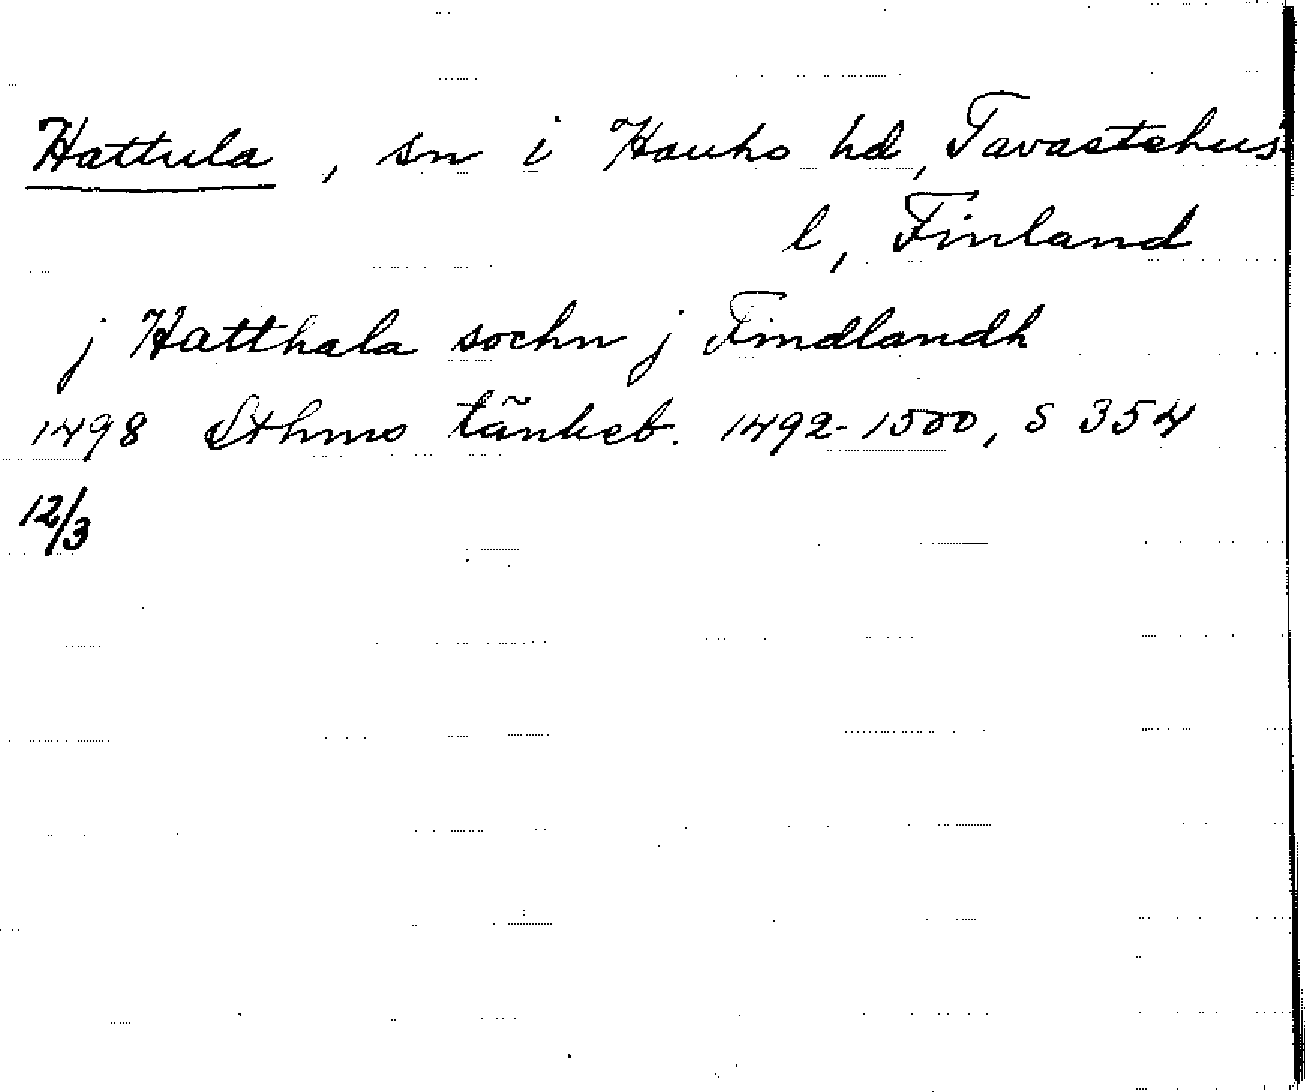 Hattula, sn i Hauho hd, Tavastehus
l, Finland
j Hatthala sochn j Findlandh
1498 Sthms tänkeb. 1492-1500, s 354
12/3